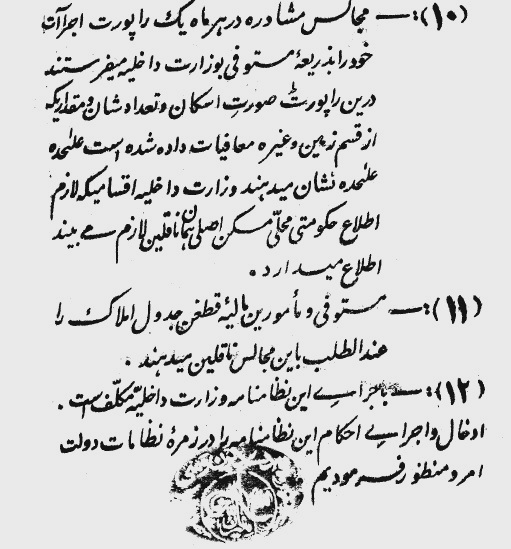 (۱۰):— مجالس مشاوره در هر ماه یک راپورت اجراآت
خود را بذریعهٔ مستوفی بوزارت داخلیه میفرستند
درین راپورت صورت اسکان و تعداد شان و مقداریکه
از قسم زمین و غیره معافیات داده شده است علٰحده
علٰحده نشان میدهند وزارت داخلیه اقسامیکه لازم
اطلاع حکومتی محلّی مسکن اصلی همان ناقلین لازم می بیند
اطلاع میدارد .
(۱۱):— مستوفی و مأمورین مالیهٔ قطغن جدول املاک را
عندالطلب باین مجالس ناقلین میدهند .
(۱۲):— باجرای این نظامنامه وزارت داخلیّه مکلّف است .
ادخال و اجرای احکام این نظامنامه را در زمرهٔ نظامات دولت
امر و منظور فرمودیم